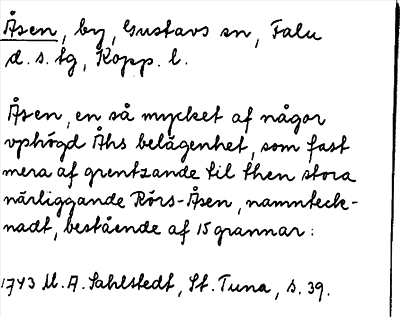 Åsen, by, Gustavs sn, Falu
d. s. tg, Kopp. l.
Åsen, en så mycket af någor
vphögd Åhs belägenhet, som fast
mera af grentzande til then stora
närliggande Rörs-Åsen, namnteck-
nadt, bestående af 15 grannar:
1743 M. A. Sahlstedt, St. Tuna, s. 39.